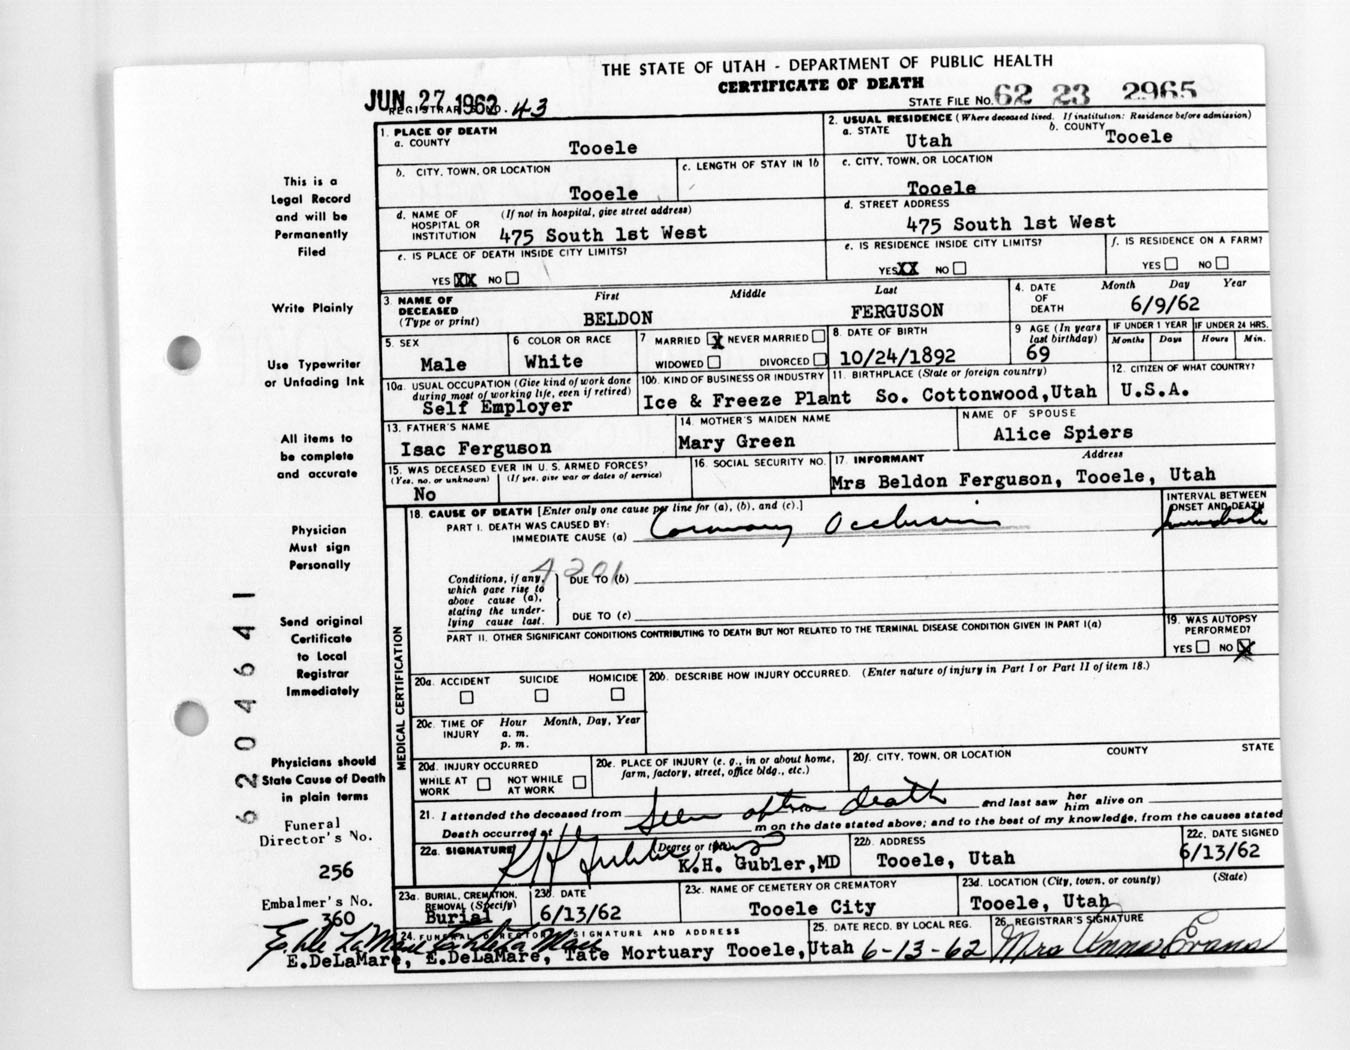 THE STATE OF UTAH - DEPARTMENT OF PUBLIC HEALTH
CERTIFICATE OF DEATH
JUN 27 1962
REGISTRAR'S NO. 43
STATE FILE NO. 62 23 2965
1. PLACE OF DEATH
a. COUNTY
Tooele
2. USUAL RESIDENCE (Where deceased lived. If institution: Residence before admission)
a. STATE
Utah
b. COUNTY
Tooele
b. CITY, TOWN, OR LOCATION
Tooele
c. LENGTH OF STAY IN 1b
c. CITY, TOWN, OR LOCATION
Tooele
d. NAME OF HOSPITAL OR INSTITUTION
(If not in hospital, give street address)
475 South 1st West
d. STREET ADDRESS
475 South 1st West
e. IS PLACE OF DEATH INSIDE CITY LIMITS?
YES XX NO
e. IS RESIDENCE INSIDE CITY LIMITS?
YES XX NO
f. IS RESIDENCE ON A FARM?
YES NO
3. NAME OF DECEASED
(Type or print)
First Middle Last
BELDON FERGUSON
4. DATE OF DEATH
Month Day Year
6/9/62
5. SEX
Male
6 COLOR OR RACE
White
7 MARRIED X NEVER MARRIED
WIDOWED DIVORCED
8. DATE OF BIRTH
10/24/1892
9 AGE (In years last birthday)
69
IF UNDER 1 YEAR
Months Days
IF UNDER 24 HRS.
Hours Min.
10a. USUAL OCCUPATION (Give kind of work done during most of working life, even if retired)
Self Employer
10b. KIND OF BUSINESS OR INDUSTRY
Ice & Freeze Plant
11. BIRTHPLACE (State or foreign country)
So. Cottonwood,Utah
12. CITIZEN OF WHAT COUNTRY?
U.S.A.
13. FATHER'S NAME
Isac Ferguson
14. MOTHER'S MAIDEN NAME
Mary Green
NAME OF SPOUSE
Alice Spiers
15. WAS DECEASED EVER IN U.S. ARMED FORCES?
(Yes, no, or unknown) (If yes, give war or dates of service)
No
16. SOCIAL SECURITY NO.
17. INFORMANT Address
Mrs Beldon Ferguson, Tooele, Utah
18. CAUSE OF DEATH [Enter only one cause per line for (a), (b), and (c).]
PART I. DEATH WAS CAUSED BY:
IMMEDIATE CAUSE (a) Coronary Occlusion
INTERVAL BETWEEN ONSET AND DEATH
immediate
Conditions, if any, which gave rise to above cause (a), stating the underlying cause last.
4201
DUE TO (b)
DUE TO (c)
PART II. OTHER SIGNIFICANT CONDITIONS CONTRIBUTING TO DEATH BUT NOT RELATED TO THE TERMINAL DISEASE CONDITION GIVEN IN PART I(a)
19. WAS AUTOPSY PERFORMED?
YES NO X
MEDICAL CERTIFICATION
20a. ACCIDENT SUICIDE HOMICIDE
20b. DESCRIBE HOW INJURY OCCURRED. (Enter nature of injury in Part I or Part II of item 18.)
20c. TIME OF INJURY
Hour Month, Day, Year
a. m.
p. m.
20d. INJURY OCCURRED
WHILE AT WORK NOT WHILE AT WORK
20e. PLACE OF INJURY (e. g., in or about home, farm, factory, street, office bldg., etc.)
20f. CITY, TOWN, OR LOCATION COUNTY STATE
21. I attended the deceased from Seen after death and last saw her him alive on
Death occurred at m on the date stated above; and to the best of my knowledge, from the causes stated
22a. SIGNATURE (Degree or title)
K.H. Gubler,MD
22b. ADDRESS
Tooele, Utah
22c. DATE SIGNED
6/13/62
23a. BURIAL, CREMATION, REMOVAL (Specify)
Burial
23b. DATE
6/13/62
23c. NAME OF CEMETERY OR CREMATORY
Tooele City
23d. LOCATION (City, town, or county) (State)
Tooele, Utah
24. FUNERAL DIRECTOR'S SIGNATURE AND ADDRESS
E.DeLaMare, E.DeLaMare, Tate Mortuary Tooele, Utah
25. DATE RECD. BY LOCAL REG.
6-13-62
26. REGISTRAR'S SIGNATURE
Mrs Anna Evans
This is a
Legal Record
and will be
Permanently
Filed
Write Plainly
Use Typewriter
or Unfading Ink
All items to
be complete
and accurate
Physician
Must sign
Personally
Send original
Certificate
to Local
Registrar
Immediately
Physicians should
State Cause of Death
in plain terms
Funeral
Director's No.
256
Embalmer's No.
360
6204641